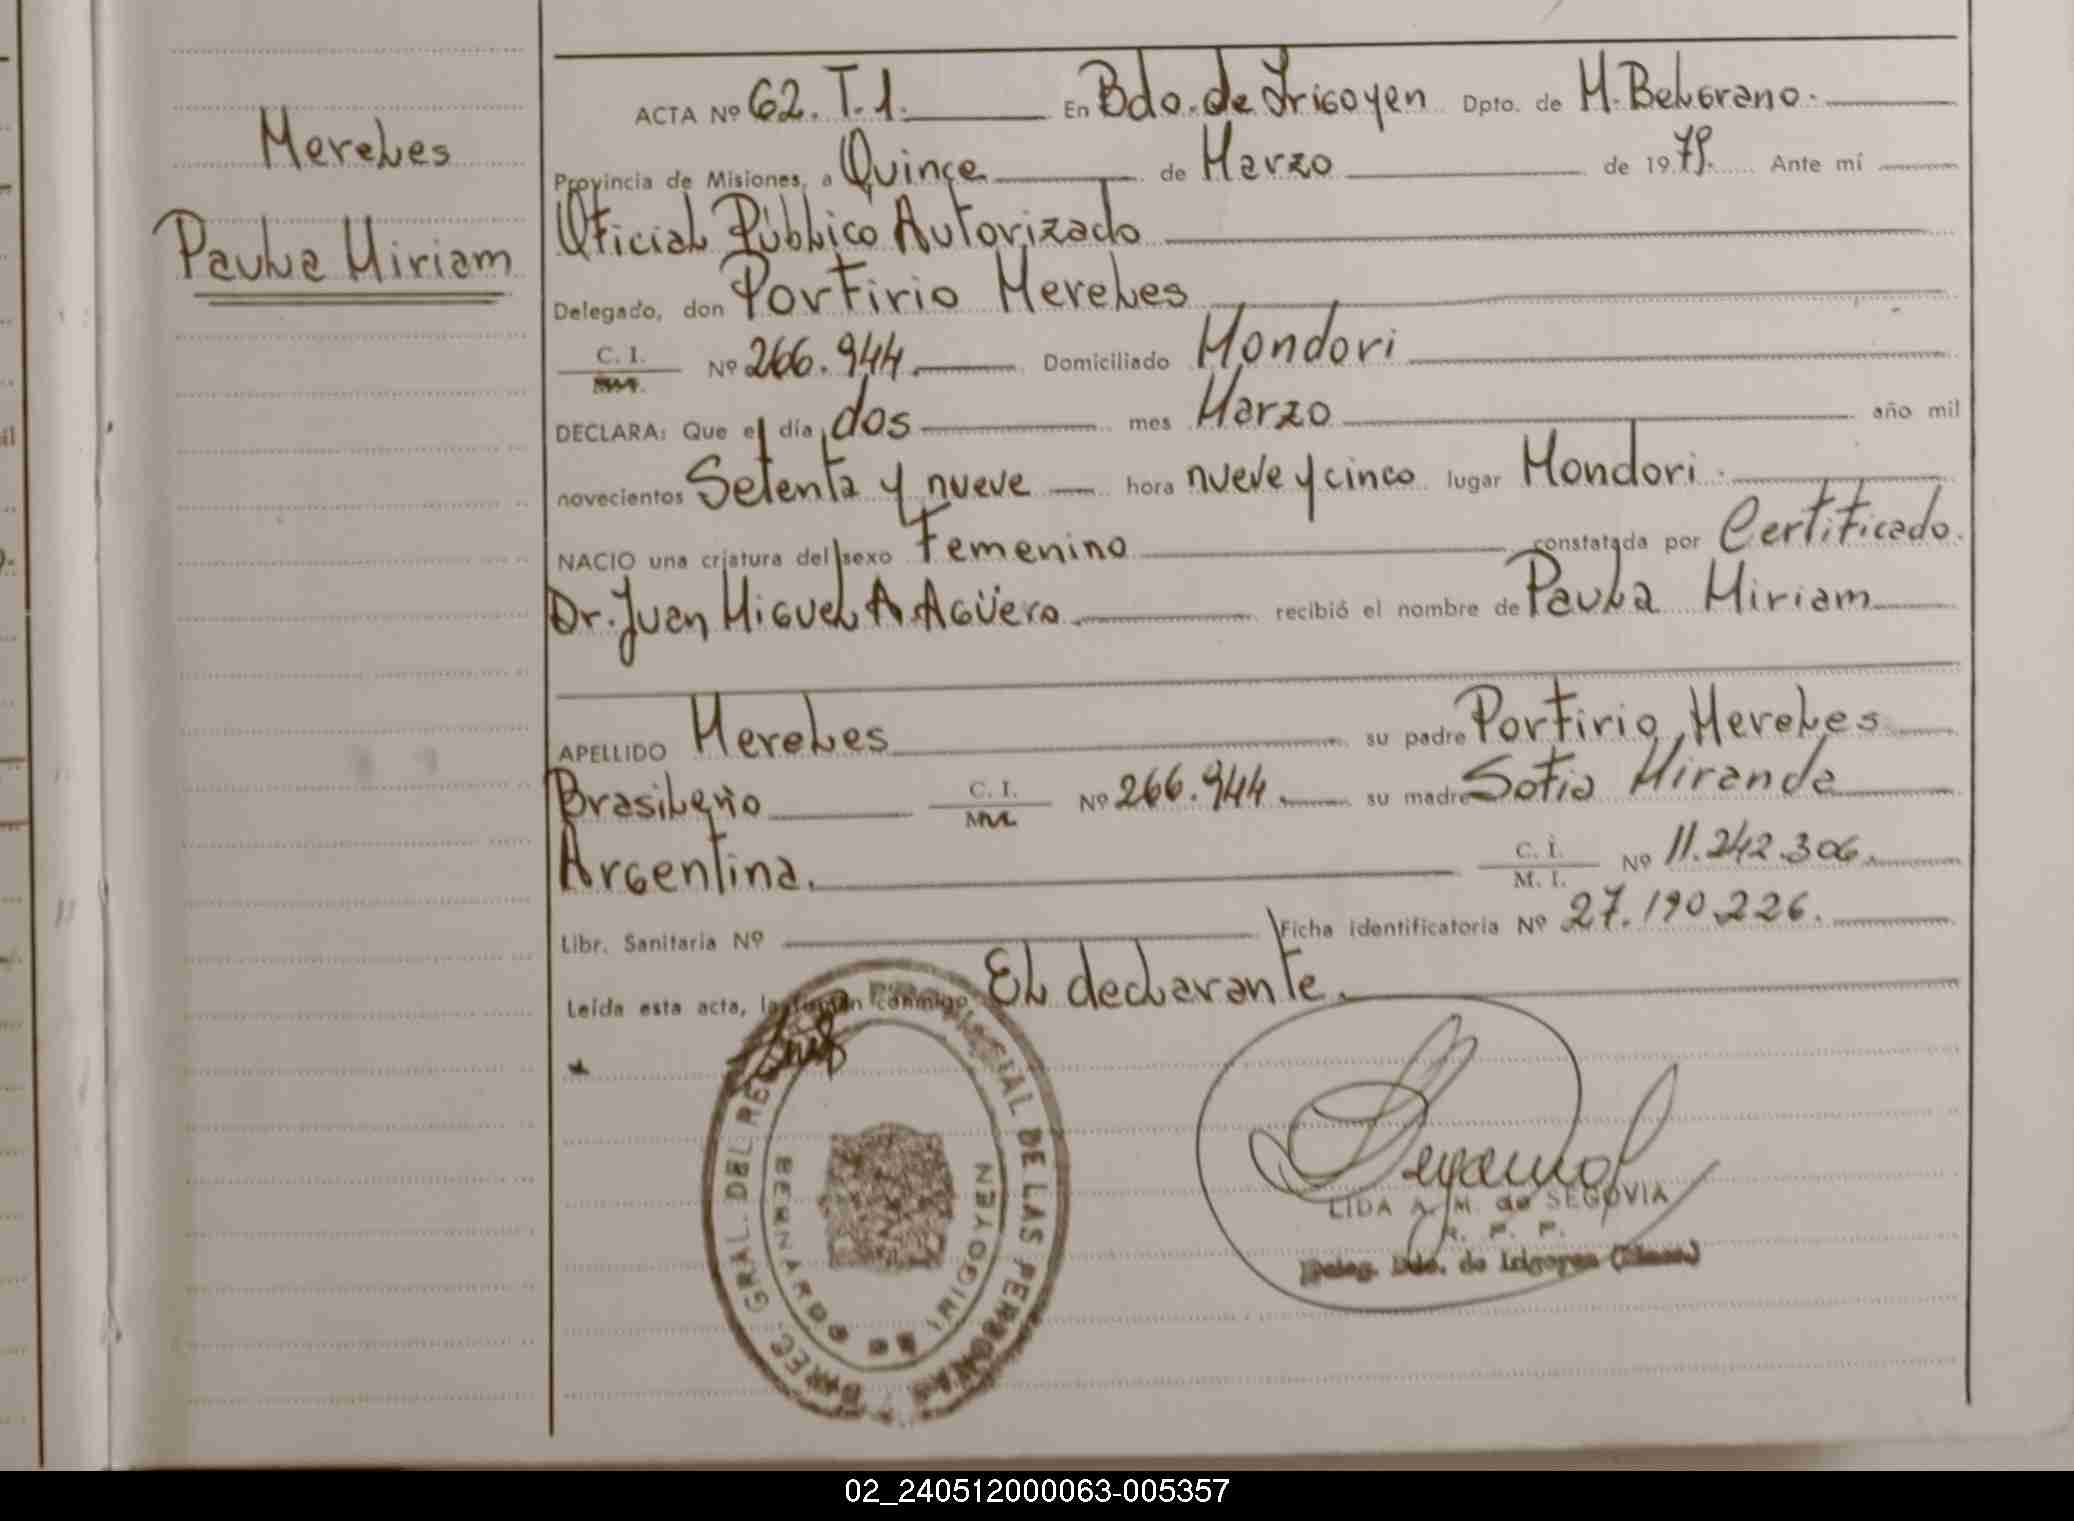 Mereles
Paula Miriam
ACTA Nº 62. T.1. En Bdo. de Irigoyen Dpto. de M. Belgrano.
Provincia de Misiones, a Quince de Marzo de 1979. Ante mí
Oficial Público Autorizado
Delegado, don Porfirio Mereles
C. I. Nº 266.944. Domiciliado Mondori
DECLARA: Que el día dos mes Marzo año mil
novecientos Setenta y nueve hora nueve y cinco lugar Mondori.
NACIO una criatura del sexo Femenino constatada por Certificado.
Dr. Juan Miguel A. Agüero recibió el nombre de Paula Miriam
APELLIDO Mereles su padre Porfirio Mereles
Brasileño C. I. Nº 266.944. su madre Sofia Miranda
Argentina. C. I. M. I. Nº 11.242.306.
Libr. Sanitaria Nº Ficha identificatoria Nº 27.190.226.
Leída esta acta, la firman conmigo El declarante.
DIREC. GRAL. DEL REG. PROVINCIAL DE LAS PERSONAS
BERNARDO DE IRIGOYEN
LIDA A. M. de SEGOVIA
Deleg. Bdo. de Irigoyen (Mnes.)
02_240512000063-005357